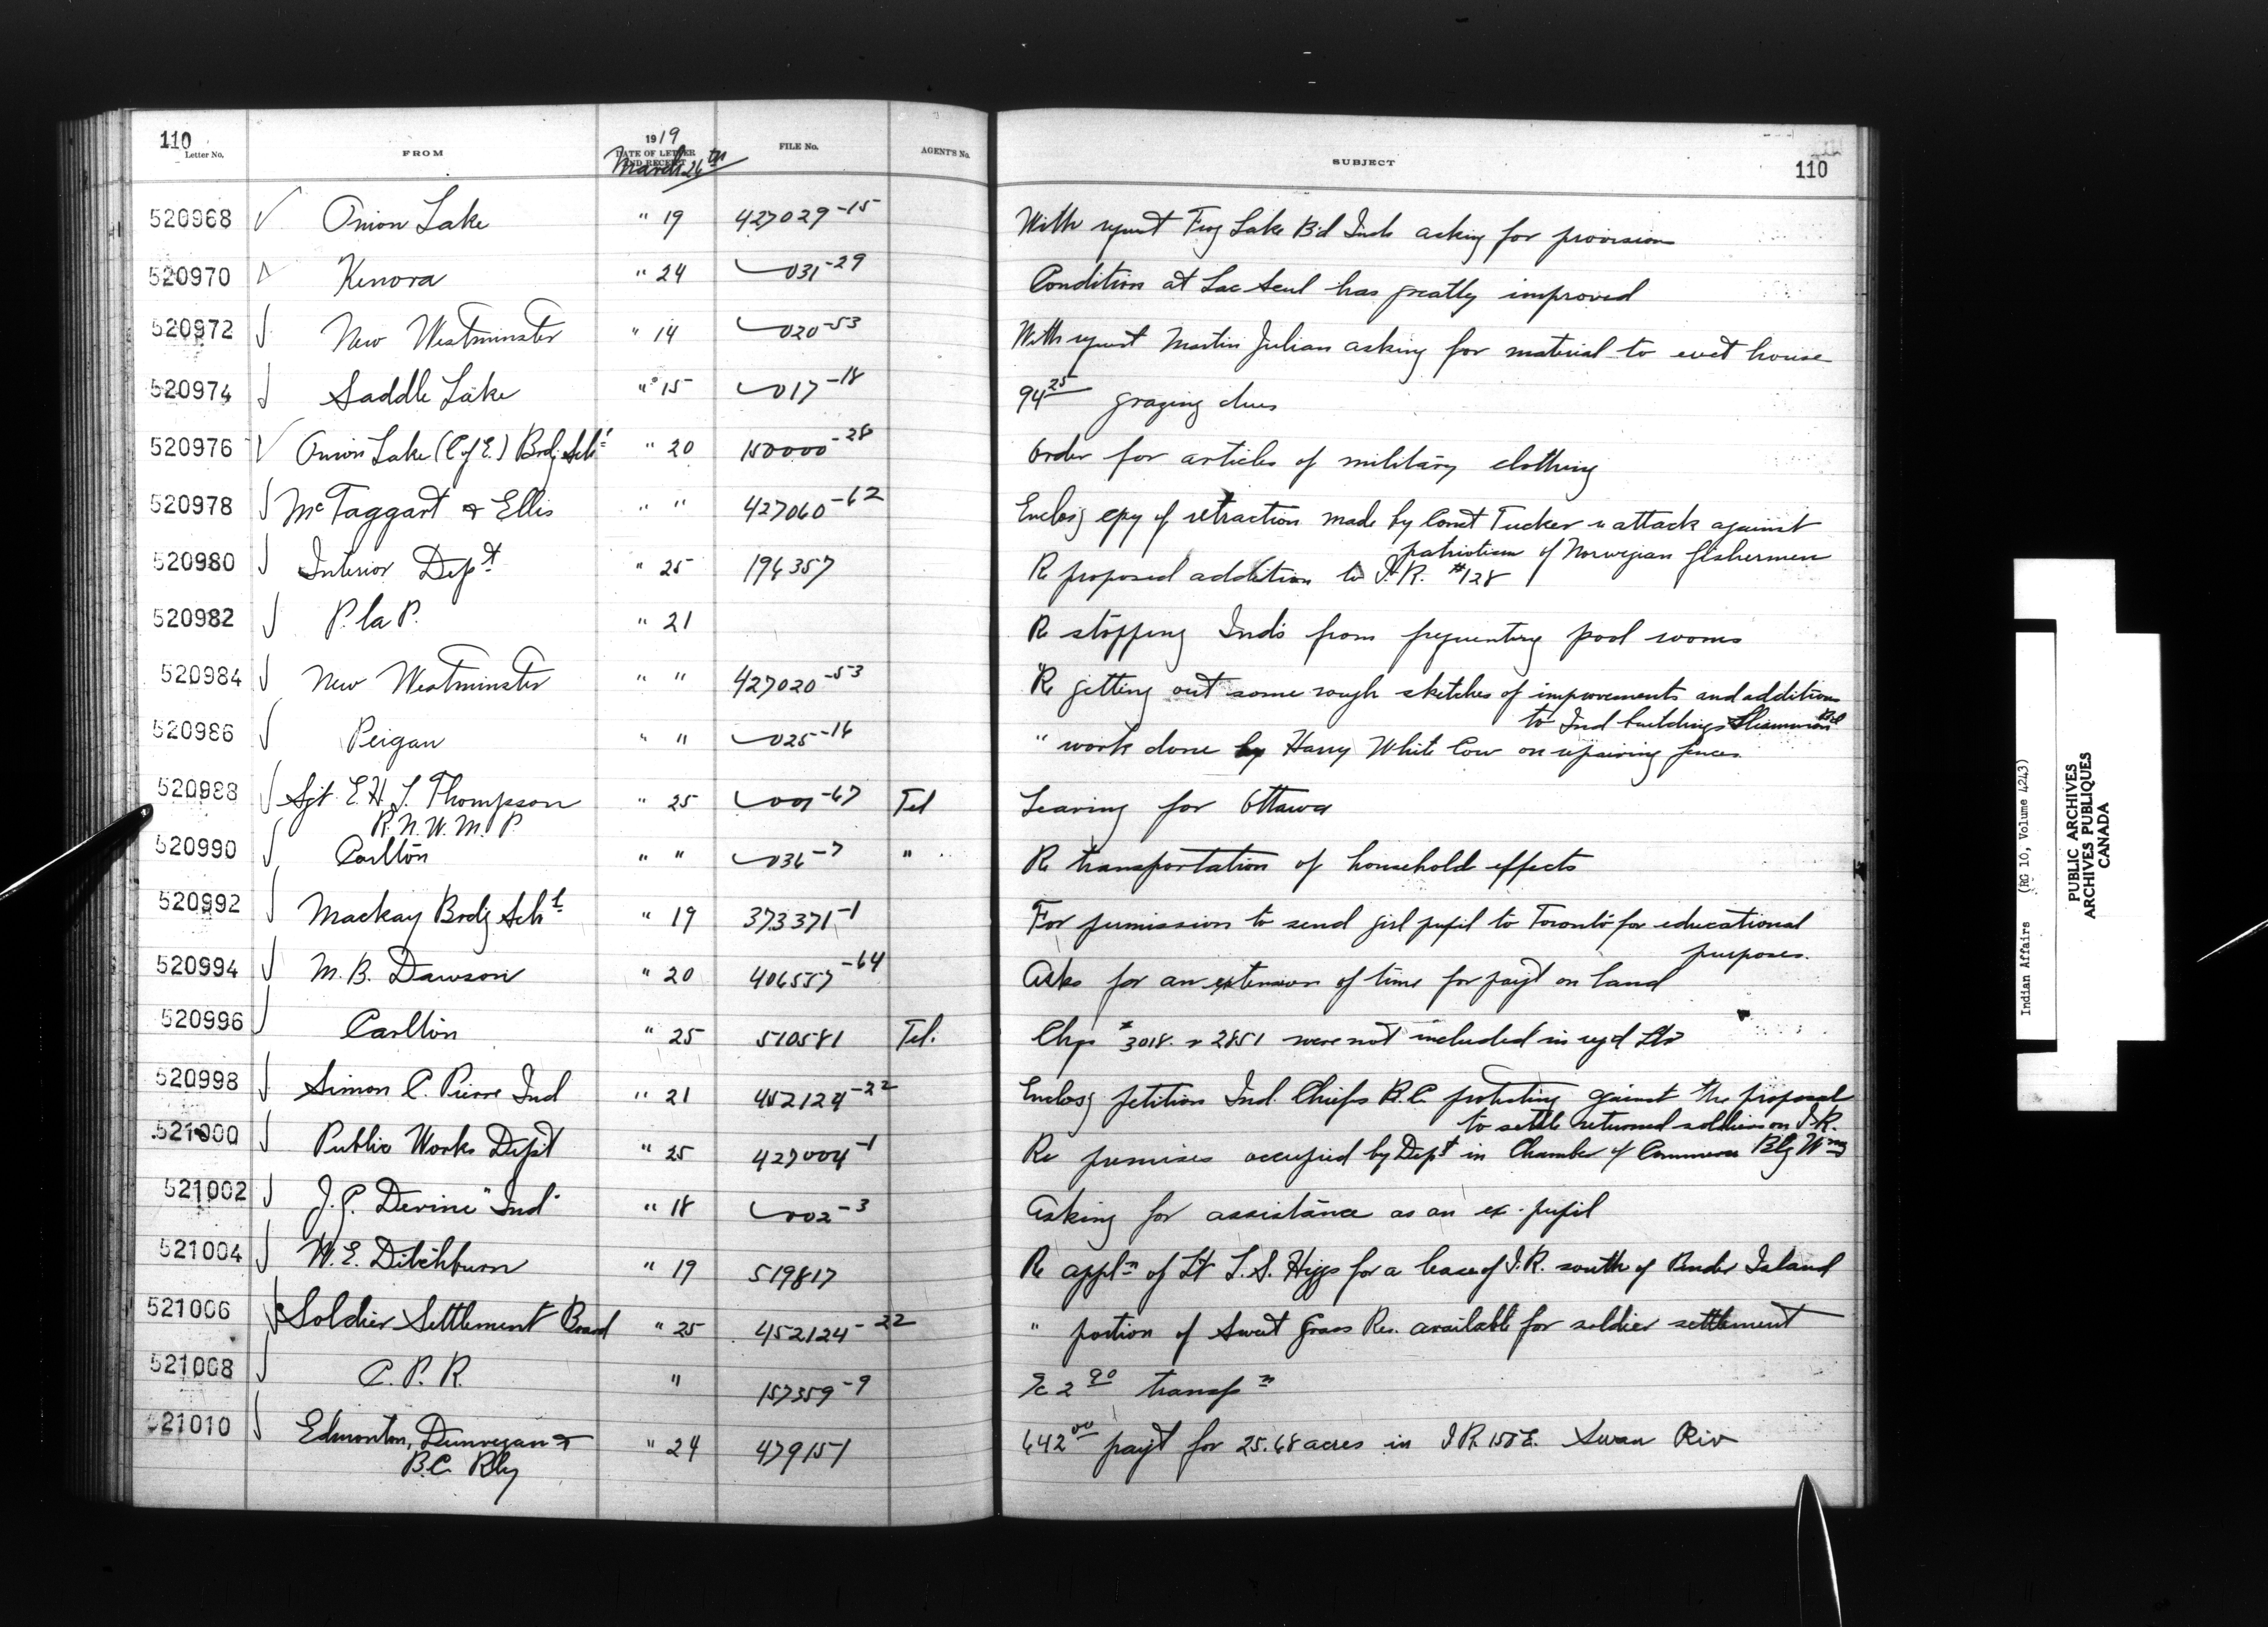 110
Letter No. FROM 1919 DATE OF LETTER AND RECEIPT FILE No. AGENT'S No. SUBJECT 110
March 26th
520968 Onion Lake " 19 427029-15 With request Frog Lake Bd Inds asking for provisions
520970 Kenora " 24 031-29 Condition at Lac Seul has greatly improved
520972 New Westminster " 14 020-53 With request Martin Julian asking for material to erect house
520974 Saddle Lake " 15 017-18 94 25 grazing dues
520976 Onion Lake (C of E.) Brdg Schl " 20 150000-28 Order for articles of military clothing
520978 McTaggart & Ellis " " 427060-62 Enclosg copy of retraction made by Const Tucker attack against
patriotism of Norwegian fishermen
520980 Interior Dept " 25 196357 Re proposed addition to I.R. #128
520982 P. la P. " 21 Re stopping Inds from frequenting pool rooms
520984 New Westminster " " 427020-53 Re getting out some rough sketches of improvements and additions
to Ind buildings Bd
520986 Peigan " " 025-16 " work done by Harry White Cow on repairing fences
520988 Sgt E.H.J. Thompson " 25 001-67 Tel Leaving for Ottawa
R.N.W.M.P.
520990 Carlton " " 036-7 " Re transportation of household effects
520992 Mackay Brdg Schl " 19 373371-1 For permission to send girl pupil to Toronto for educational
purposes.
520994 M.B. Dawson " 20 406557-64 Asks for an extension of time for payt on land
520996 Carlton " 25 510581 Tel. Chqs #3018 & 2851 were not included in regd Ltr
520998 Simon C. Pierre Ind " 21 452124-22 Enclosg petition Ind. Chiefs B.C. protesting against the proposal
to settle returned soldiers on I.R.
521000 Public Works Dept " 25 427004-1 Re premises occupied by Dept in Chamber of Commerce Blg Wpg
521002 J.P. Devine "Ind" " 18 002-3 Asking for assistance as an ex-pupil
521004 W.E. Ditchburn " 19 519817 Re appln of Lt L.S. Higgs for a lease of I.R. south of Pender Island
521006 Soldier Settlement Board " 25 452124-22 " portion of Sweet Grass Res. available for soldier settlement
521008 C.P.R. " 157359-9 2 90 transpn
521010 Edmonton, Dunvegan & " 24 479151 642 00 payt for 25.68 acres in I.R. 150E. Swan Riv
B.C. Rly
Indian Affairs (RG 10, Volume 4243)
PUBLIC ARCHIVES
ARCHIVES PUBLIQUES
CANADA